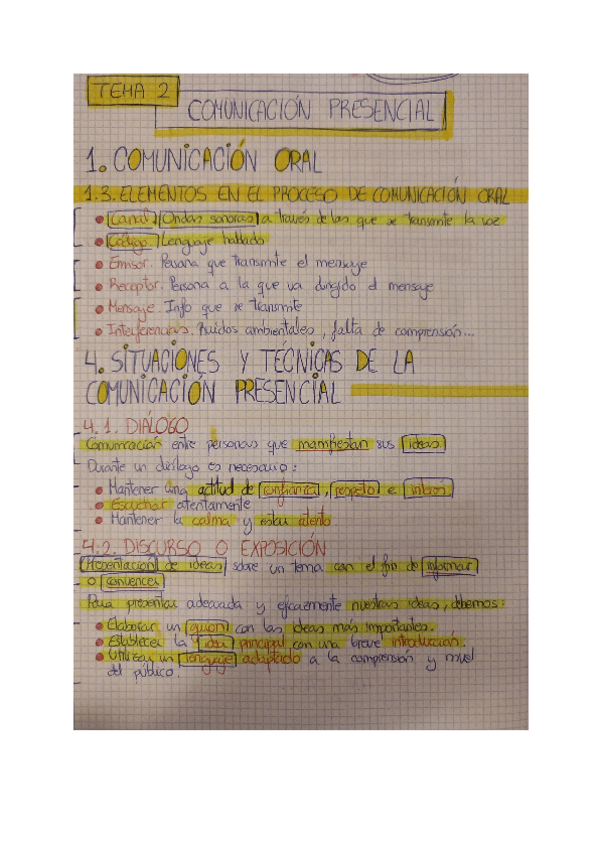 TEMA 2
COMUNICACIÓN PRESENCIAL
1. COMUNICACIÓN ORAL
1.3. ELEMENTOS EN EL PROCESO DE COMUNICACIÓN ORAL
Canal. Ondas sonoras a través de las que se transmite la voz
Código. Lenguaje hablado
Emisor. Persona que transmite el mensaje
Receptor. Persona a la que va dirigido el mensaje
Mensaje. Info que se transmite
Interferencias. Ruidos ambientales, falta de comprensión...
4. SITUACIONES Y TÉCNICAS DE LA
COMUNICACIÓN PRESENCIAL
4.1. DIÁLOGO
Comunicación entre personas que manifiestan sus ideas
Durante un diálogo es necesario:
Mantener una actitud de confianza, respeto e interés
Escuchar atentamente
Mantener la calma y estar atento
4.2. DISCURSO O EXPOSICIÓN
Presentación de ideas sobre un tema con el fin de informar
o convencer
Para presentar adecuada y eficazmente nuestras ideas, debemos:
Elaborar un guion con las ideas más importantes.
Establecer la idea principal con una breve introducción.
Utilizar un lenguaje adaptado a la comprensión y nivel
del público.